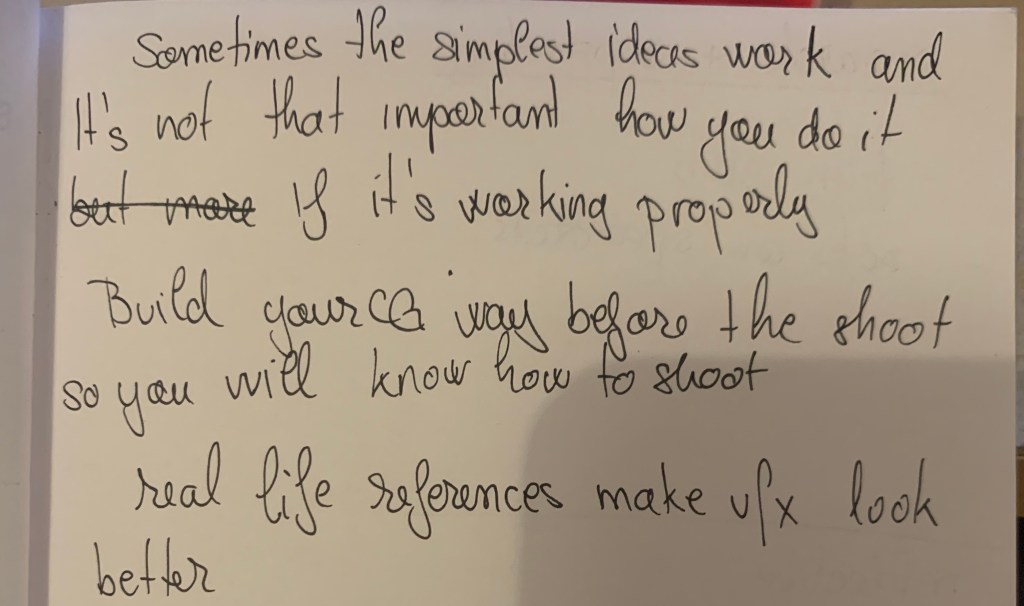 Sometimes the simplest ideas work and
It's not that important how you do it
but more If it's working properly
Build your CG way before the shoot
so you will know how to shoot
real life references make vfx look
better